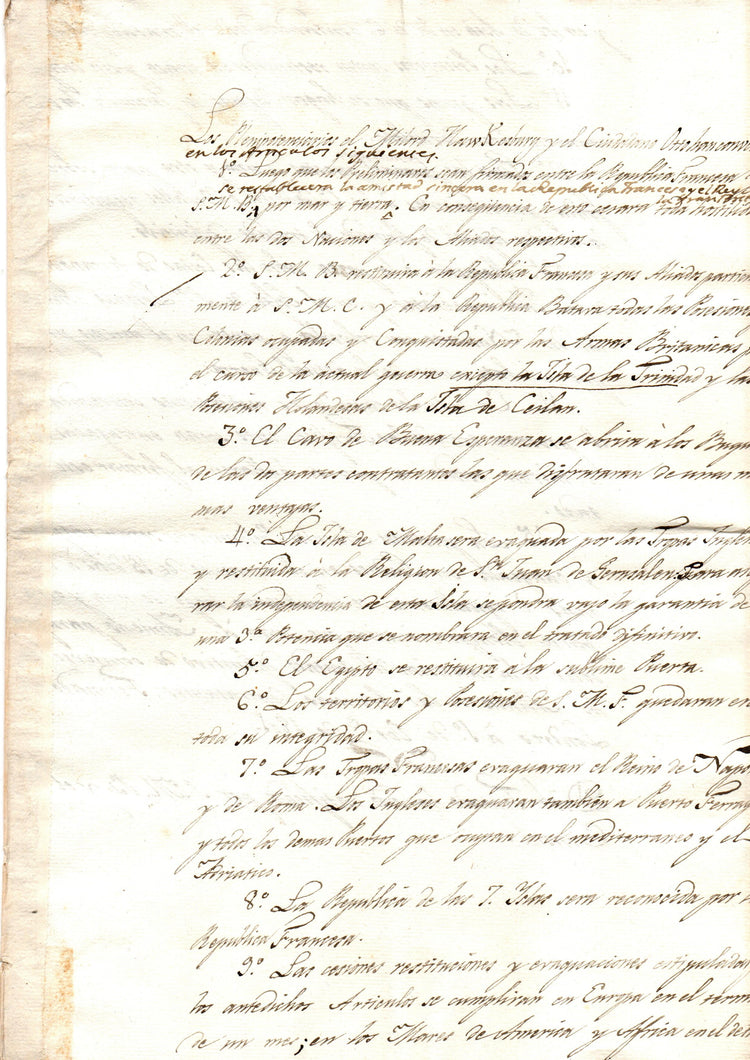 Los Plenipotenciarios el Milord Hawkesbury y el Ciudadano Otto han conv
en los Articulos siguientes.
1º Luego que los Preliminares sean firmados entre la Republica Francesa
se restablecera la amistad sincera en la Republica francesa y el Rey
S.M.B. por mar y tierra. En conseqüencia de eso cesara toda hostili
entre las dos Naciones y los Aliados respectivos.
2º S.M.B. restituira à la Republica Francesa y sus Aliados particu
mente à S.M.C. y à la Republica Batava todas las Posesiones
Colonias ocupadas y Conquistadas por las Armas Britanicas
el curso de la actual guerra excepto la Isla de la Trinidad y las
Posesiones Holandesas de la Isla de Ceilan.
3º El Cavo de Buena Esperanza se abrira à los Buqu
de las do partes contratantes las que disfrutaran de unas m
mas ventajas.
4º La Isla de Malta sera evaquada por las Tropas Ingles
y restituida à la Religion de Sn. Juan de Gerusalen. Para
rar la independencia de esta Isla se pondra vajo la garantia de
una 3ª Potencia que se nombrara en el tratado difinitivo.
5º El Egipto se restituira à la sublime Puerta.
6º Los territorios y Posesiones de S.M.F. quedaran en
toda su integridad.
7º Las Tropas Francesas evaquaran el Reino de Napo
y de Roma. Los Ingleses evaquaran tambien a Puerto Ferra
y todos los demas Puertos que ocupan en el mediterraneo y el
Adriatico.
8º La Republica de las 7. Islas sera reconocida por
Republica Francesa.
9º Las cesiones restituciones y evaquaciones estipulados
los antedichos Articulos se cumpliran en Europa en el term
de un mes; en los Mares de America y Africa en el de